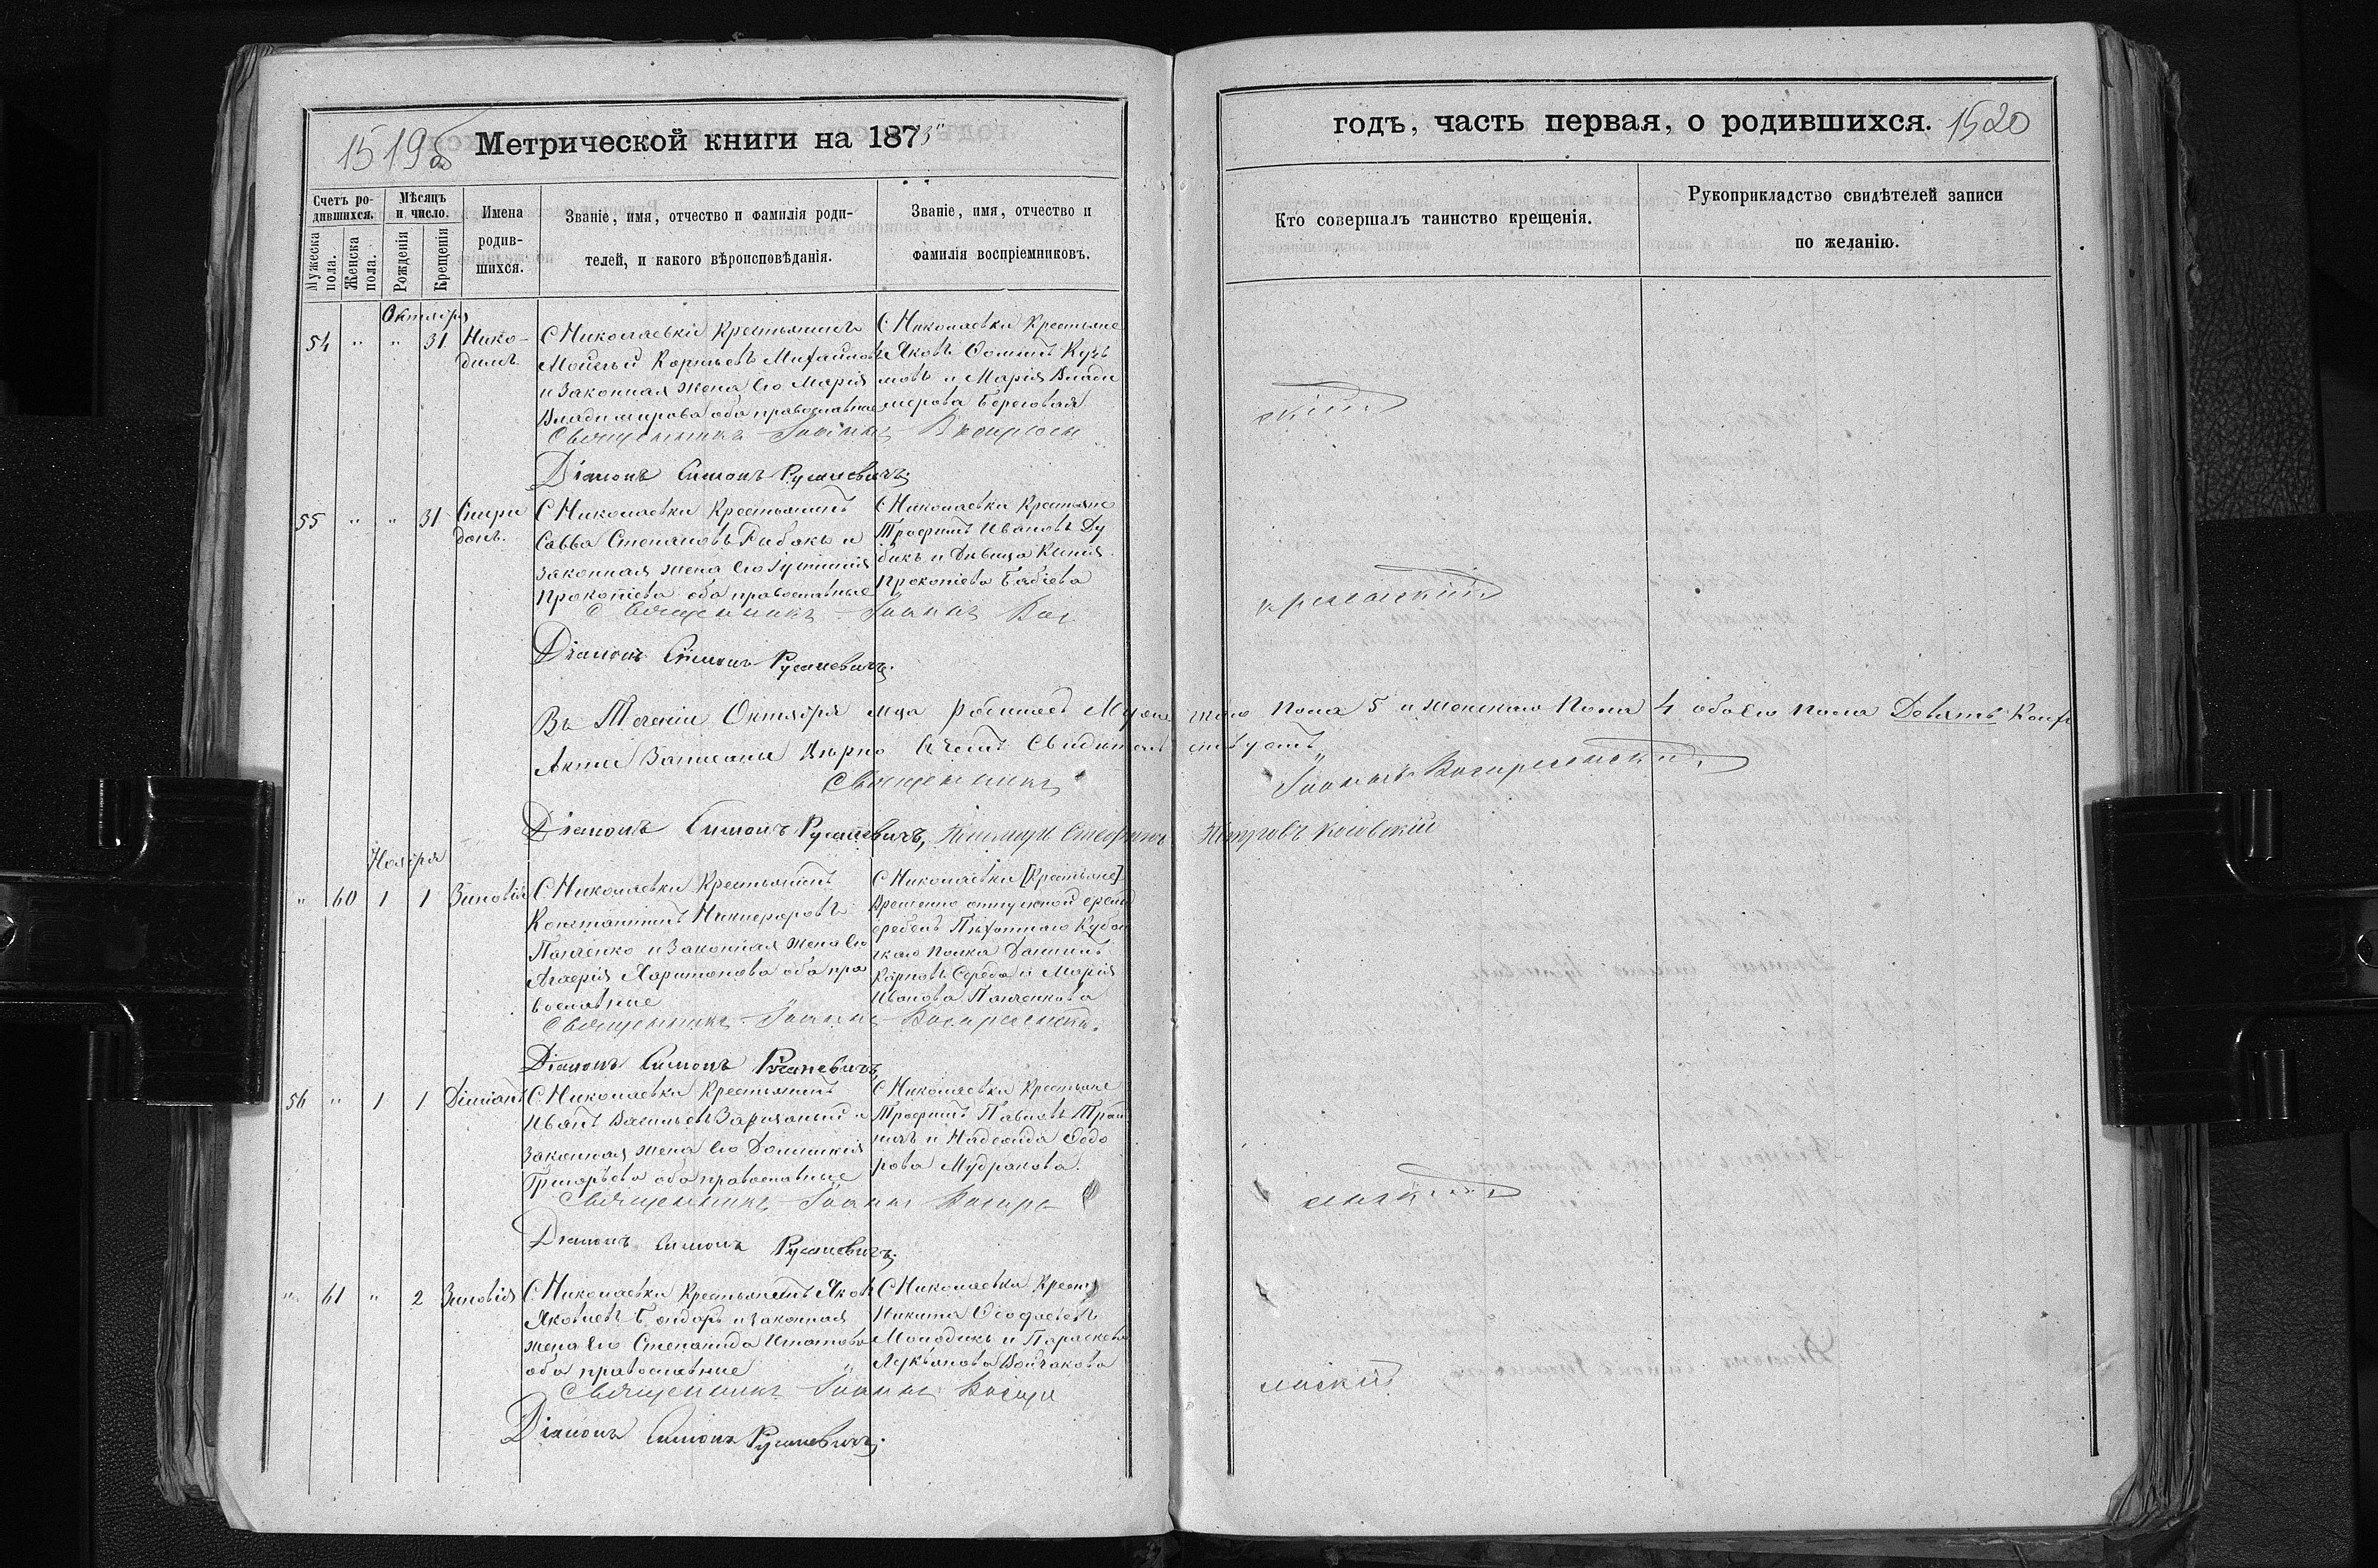 1519об Метрической книги на 1875
годъ, часть первая, о родившихся. 1520
Счетъ ро-
дившихся.
Мужеска
пола.
Женска
пола.
Мѣсяцъ
и число.
Рожденія
Крещенія
Имена
родив-
шихся.
Званіе, имя, отчество и фамилія роди-
телей, и какого вѣроисповѣданія.
Званіе, имя, отчество и
фамилія воспріемниковъ.
Кто совершалъ таинство крещенія.
Рукоприкладство свидѣтелей записи
по желанію.
Октября
54 " " 31 Нико-
димъ
С Николаевки Крестьянинъ
Моисей Михайловъ
и Законная жена его Марія
Владимирова оба православные
С Николаевки Крестьяне
Яковъ Фоминъ Кузь
мовъ и Марія Влади
мерова Береговая
Священникъ Іоаннъ Воскресен
скій
Діаконъ Симонъ Русаневичъ
55 " " 31 Спири
донъ.
С Николаевки Крестьянинъ
Савва Степановъ Рибакъ и
законная жена его Іулианія
Прокопіева оба православные
С Николаевки Крестьяне
Трофимъ Ивановъ Ду
бикъ и Дѣвица
Прокопіева Бабіева
Священникъ Іоаннъ Вос
кресенскій
Діаконъ Симонъ Русаневичъ.
Въ Теченіи Октября мца родилось Муже скаго Пола 5 и женскаго Пола 4 обоего пола Девять
Акты Записаны Вѣрно въ чемъ Свидѣтель ствуютъ
Священникъ Іоаннъ Воскресенскій
Діаконъ Симонъ Русаневичъ, Стефанъ
Ноября
" 60 1 1 Зиновія
С Николаевки Крестьянинъ
Константинъ Никифоровъ
Панченко и Законная жена его
Харитонова оба пра
вославные
С Николаевки [Крестьяне]
Временно отпускной
Пѣхотнаго Кубан
скаго полка Даніилъ
Карповъ Середа и Марія
Иванова Панченкова
Священникъ Іоаннъ Воскресенскій
Діаконъ Симонъ Русаневичъ
56 " 1 1 Даміанъ
С Николаевки Крестьянинъ
Иванъ Васильевъ и
законная жена его Домникія
Григорьева оба православные
С Николаевки Крестьяне
Трофимъ Павловъ
и Надежда Федо
рова Мудракова.
Священникъ Іоаннъ Воскре
сенскій
Діаконъ Симонъ Русаневичъ.
" 61 " 2 Зиновія
С Николаевки Крестьянинъ Яковъ
Яковлевъ Бондарь и законная
жена его Степанида Игнатова
оба православные
С Николаевки Крестья
Никита Феофаовъ
Молодикъ и Параскева
Лукьянова
Священникъ Іоаннъ Воскре
сенскій
Діаконъ Симонъ Русаневичъ.